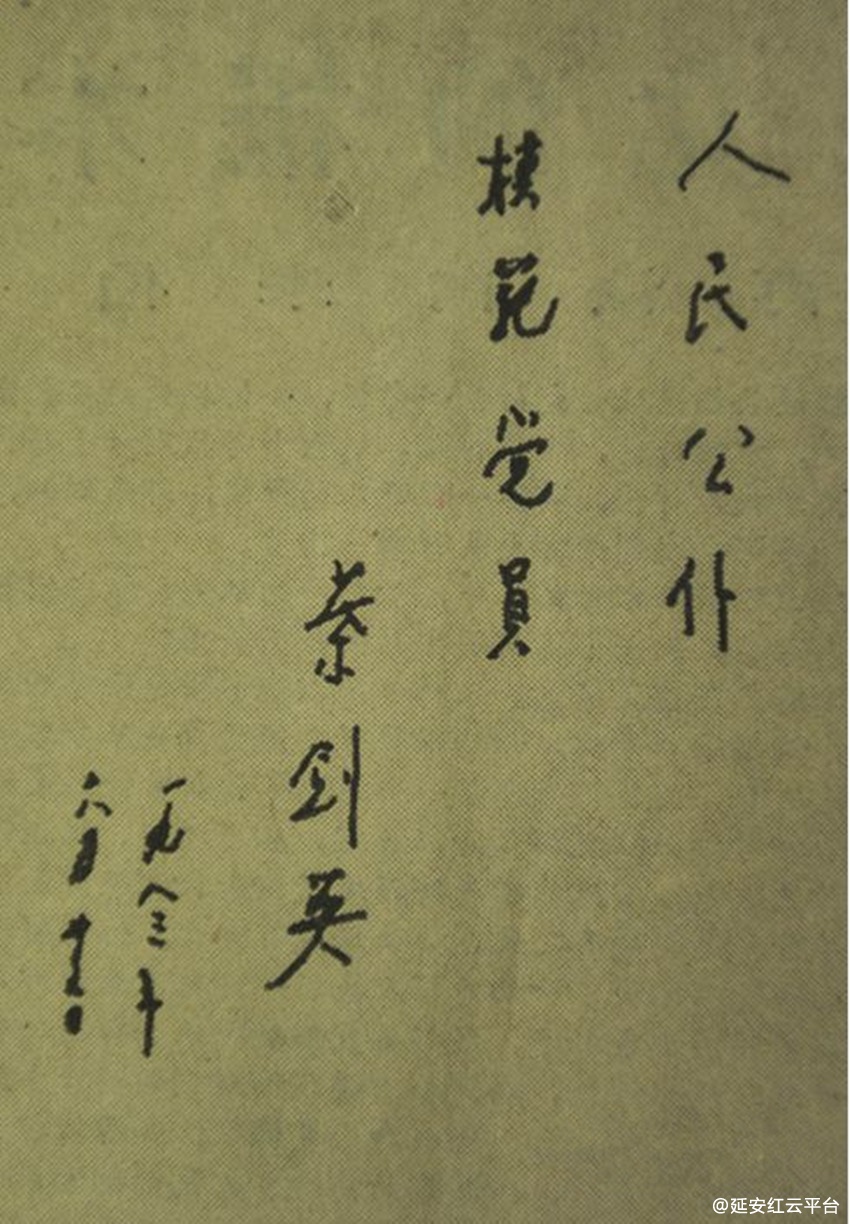 人民公仆
模范党員
葉剑英
一九八三年
六月十五日
@延安红云平台